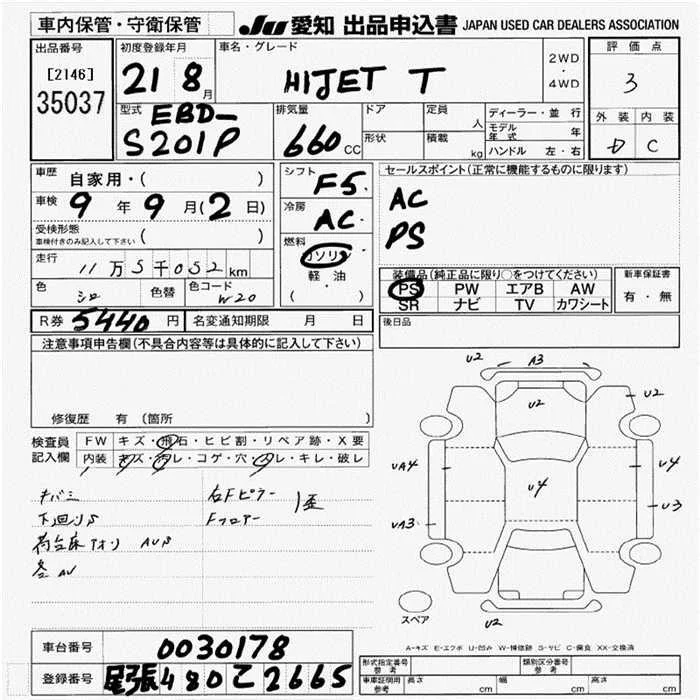 車内保管・守衛保管 JU 愛知 出品申込書 JAPAN USED CAR DEALERS ASSOCIATION
出品番号
[2146]
35037
初度登録年月
21 8 月
車名・グレード
HIJET T
2WD
・
4WD
評価点
3
外装 内装
D C
型式
EBD-
S201P
排気量
660 CC
ドア
形状
定員
人
積載
kg
ディーラー・並行
モデル年 年
ハンドル 左・右
車歴
自家用・( )
車検
9 年 9 月 ( 2 日)
受検形態
車検付きのみ記入して下さい ( )
走行
11万5千052 km
色
シロ
色替
色コード
W20
シフト
F5
冷房
AC
燃料
ガソリン・
軽油
( ・ )
セールスポイント(正常に機能するものに限ります)
AC
PS
装備品(純正品に限り○をつけてください)
PS PW エアB AW
SR ナビ TV カワシート
新車保証書
有・無
R券 5440 円 名変通知期限 月 日
後日品
注意事項申告欄(不具合内容等は具体的に記入して下さい)
修復歴 有 (箇所 )
検査員
記入欄
FW キズ・飛石・ヒビ割・リペア跡・X要
内装 キズ・汚レ・コゲ・穴・スレ・キレ・破レ
キバミ
下廻りS
荷台床アオリ AUS
各AU
右Fピラー
Fフロアー
歪
U2 A3
U2
U2
UA4
U4
U4
UA3
U3
U2
スペア
A-キズ E-エクボ U-凹み W-補修跡 S-サビ C-腐食 XX-交換済
車台番号 0030178
登録番号 尾張480 て 2665
形式指定番号
参考
類別区分番号
参考
車庫証明用
参考
長さ cm 幅 cm 高さ cm